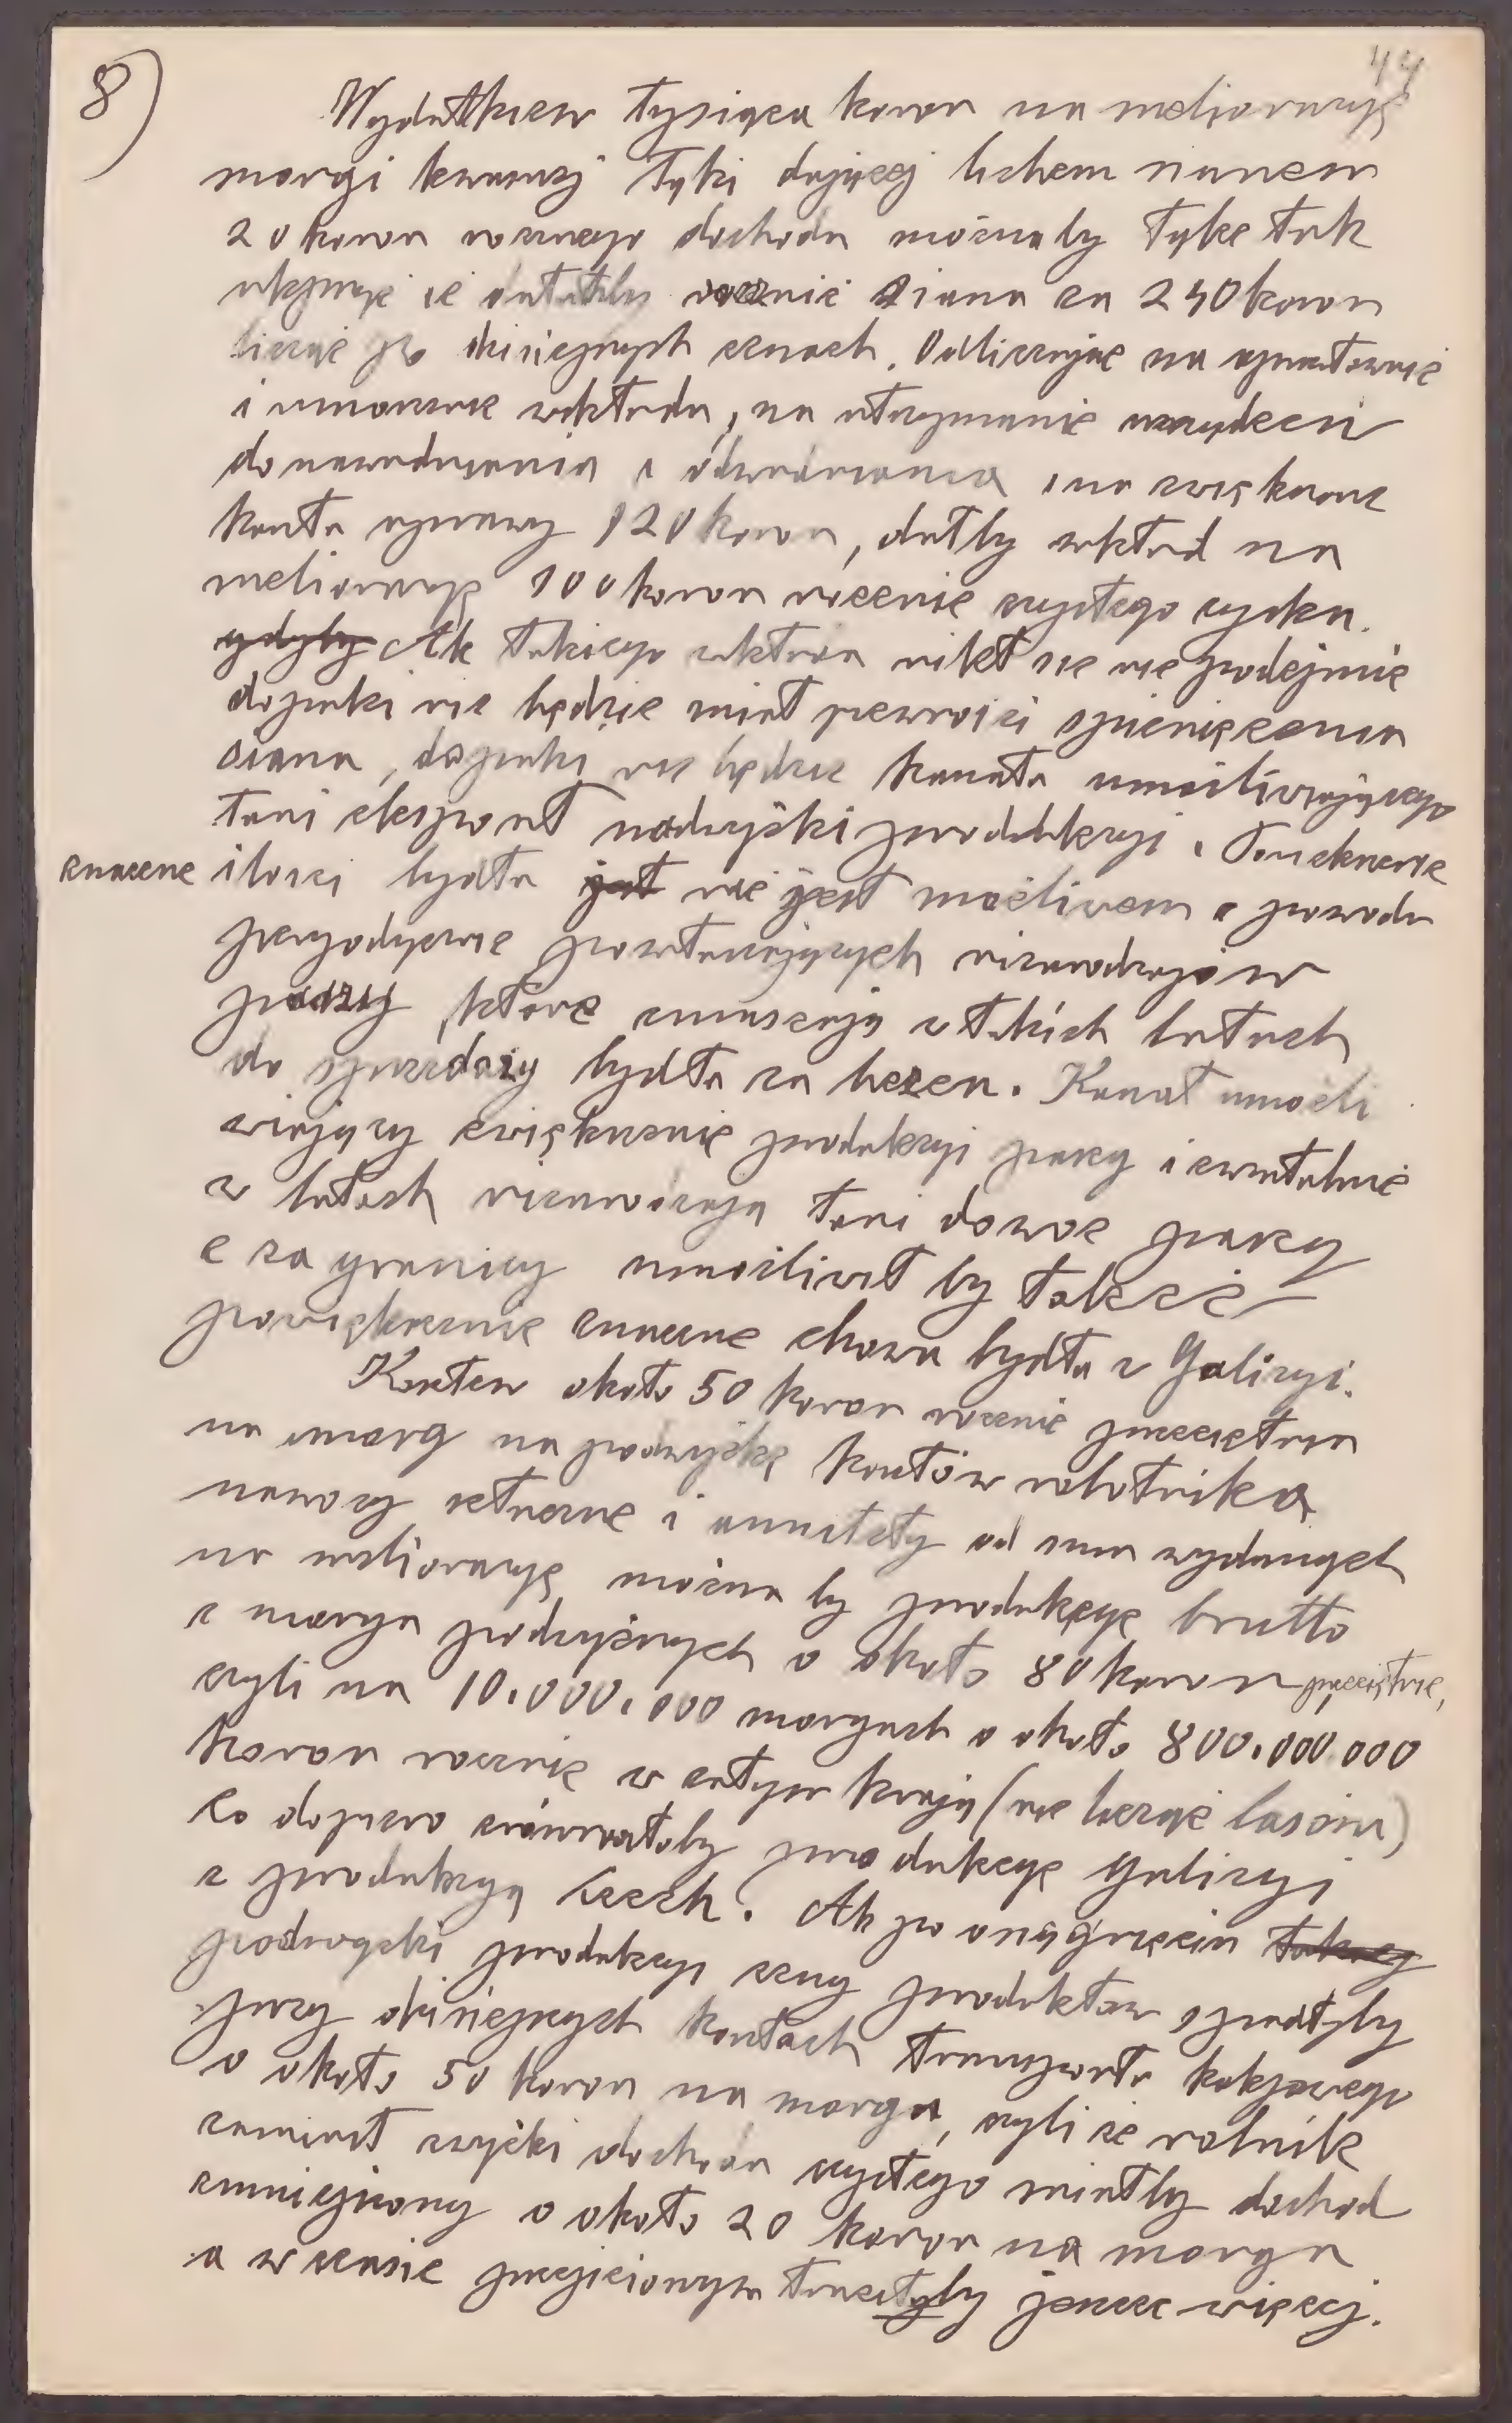 8)
44
Wydatkiem tysiąca koron na melioracyę
morgi kwaśnej łąki dającej lichem sianem
20 koron rocznego dochodu możnaby łąkę tak
że dałaby rocznie siana za 240 koron
licząc po dzisiejszych cenach. Odliczając na oprocentowanie
i umorzenie wkładu, na utrzymanie urządzeń
do nawadniania i odwadniania i na zwiększone
koszta uprawy 120 koron, dałby wkład na
melioracyę 100 koron rocznie czystego zysku.
gdyby Ale takiego wkładu nikt się nie podejmie
dopóki nie będzie miał pewności spieniężenia
siana, dopóki nie będzie kanału umożliwiającego
tani eksport nadwyżki produkcyi.
znaczne ilości bydła jest nie jest możliwem z powodu
peryodycznie powtarzających nieurodzajów
paszy, które zmuszają w takich latach
do sprzedaży bydła za bezcen. Kanał umożli
wiający zwiększenie produkcyi paszy i ewentualnie
w latach nieurodzaju tani dowóz paszy
z za granicy umożliwił by także
powiększenie znaczne chowu bydła w Galicyi.
Kosztem około 50 koron rocznie przeciętnie
na morg na podwyżkę kosztów robotnika
nawozy sztuczne i annuitety od sum wydanych
na melioracyę, można by produkcyę brutto
z morga podwyższyć o około 80 koron przeciętnie,
czyli na 10.000.000 morgach o około 800.000.000
koron rocznie w całym kraju (nie licząc lasów)
co dopiero zrównałoby produkcyę Galicyi
z produkcyą Czech. Ale po osiągnięciu takiej
podwyżki produkcyi ceny produktów spadłyby
przy dzisiejszych kosztach transportu kolejowego
o około 50 koron na morgu, czyli że rolnik
zamiast zwyżki dochodu czystego miałby dochód
zmniejszony o około 20 koron na morgu
a w czasie przejściowym traciłby jeszcze więcej.